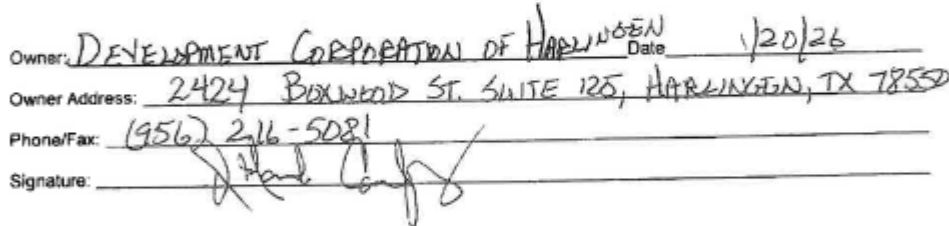 Owner: DEVELOPMENT CORPORATION OF HARLINGEN Date 1/20/26
Owner Address: 2424 BOXWOOD ST. SUITE 125, HARLINGEN, TX 78550
Phone/Fax: (956) 216-5081
Signature: